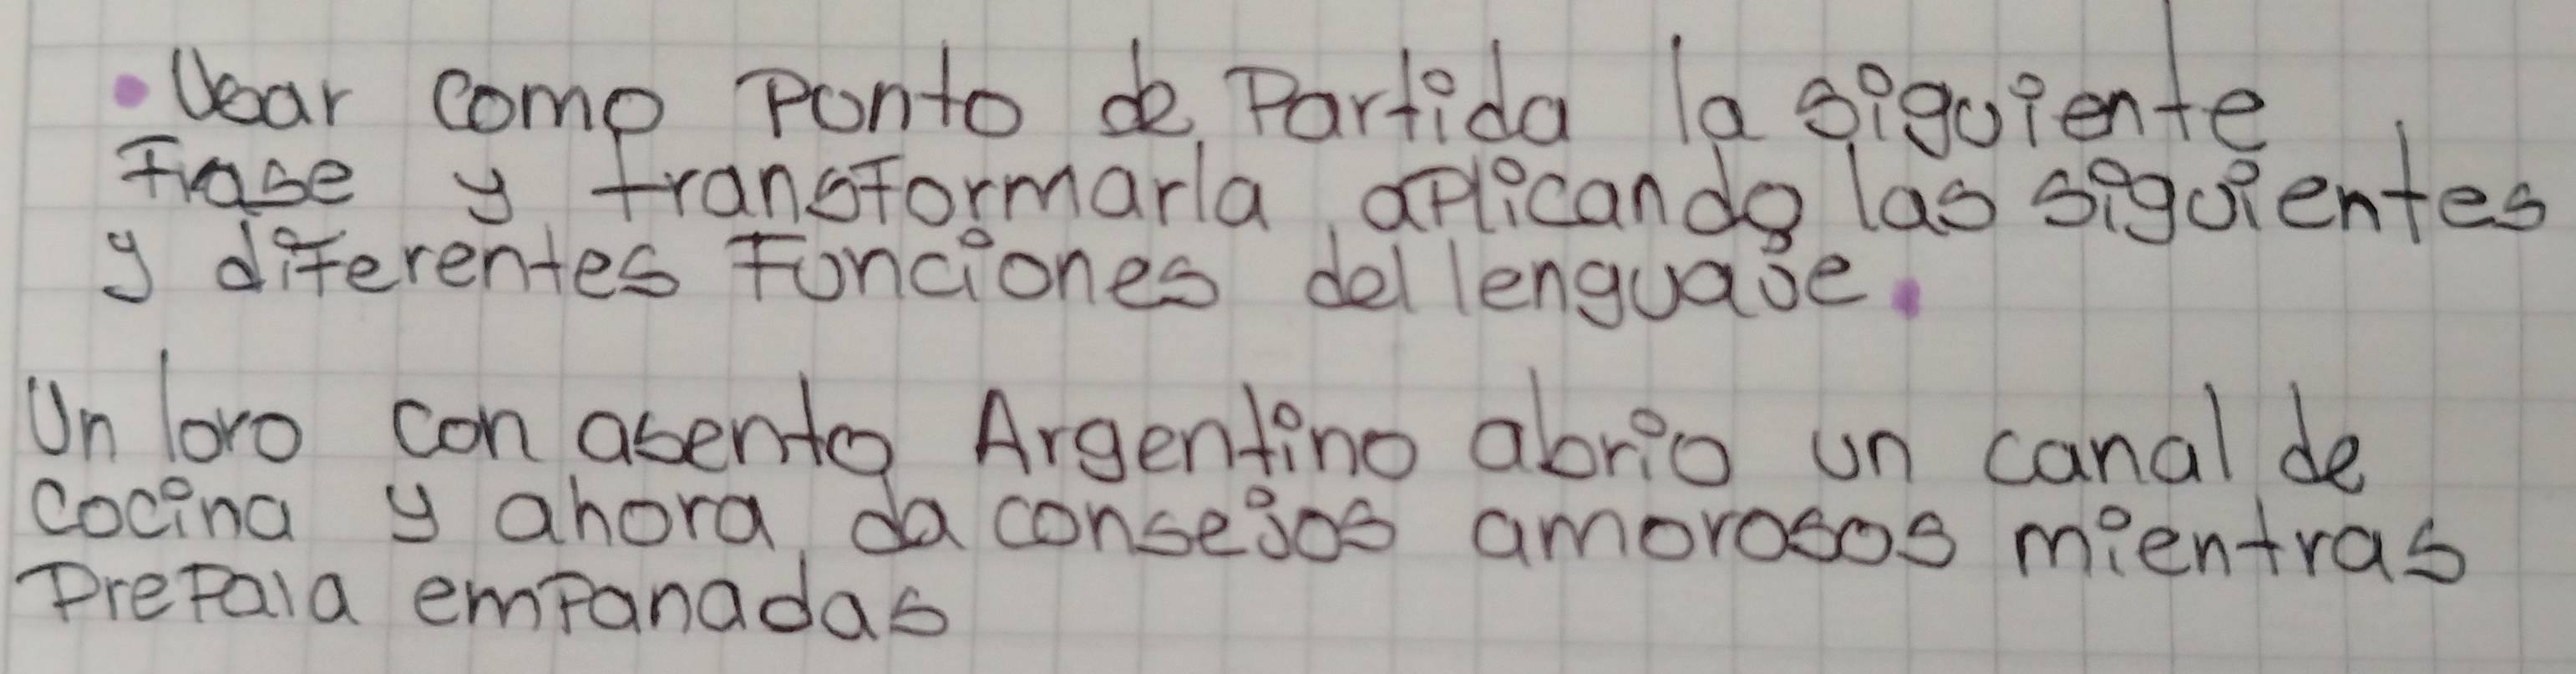 • Usar como Punto de Partida la siguiente
Frase y transformarla aplicando las siguientes
y diferentes Funciones del lenguaje.
Un loro con asento Argentino abrio un canal de
cocina y ahora da consejos amorosos mientras
Prepara empanadas